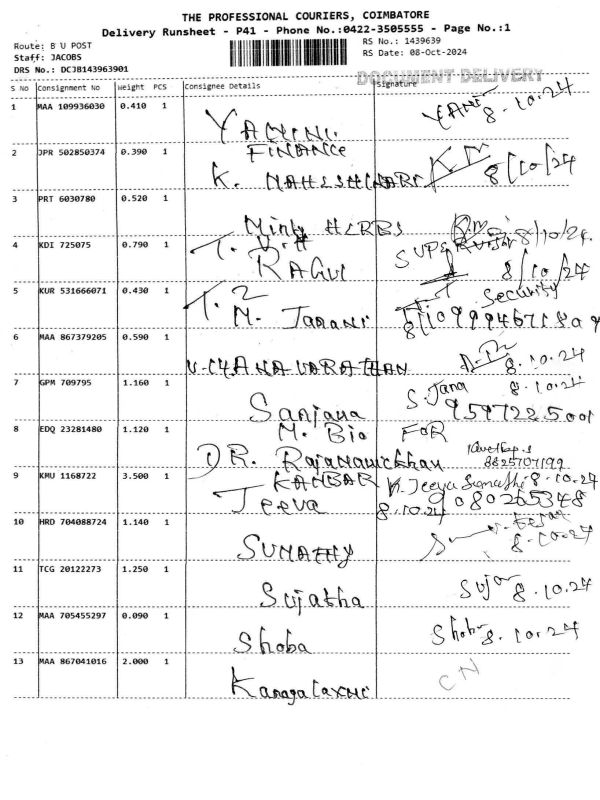 THE PROFESSIONAL COURIERS, COIMBATORE
Delivery Runsheet - P41 - Phone No.:0422-3505555 - Page No.:1
Route: B U POST
RS No.: 1439639
Staff: JACOBS
RS Date: 08-Oct-2024
DRS No.: DCJB143963901
DOCUMENT DELIVERY
S No Consignment No Weight PCS Consignee Details Signature
1 MAA 109936030 0.410 1
YAMINI 8.10.24
FINANCE
2 JPR 502850374 0.390 1
K. MAHESHWARI KM 8/10/24
3 PRT 6030780 0.520 1
HERBS 8/10/24
4 KDI 725075 0.790 1
T. V. H
RAGUL 8/10/24
5 KUR 531666071 0.430 1
T. 2 Security
M. Janani
6 MAA 867379205 0.590 1
8.10.24
7 GPM 709795 1.160 1
S. Jana 8.10.24
Sanjana 9597225001
8 EDQ 23281480 1.120 1
M. Bio FOR
DR. 8825707199
9 KMU 1168722 3.500 1
8.10.24
Jeeva 8.10.24
10 HRD 704088724 1.140 1
SUMATHY 8.10.24
11 TCG 20122273 1.250 1
Sujatha Suja 8.10.24
12 MAA 705455297 0.090 1
Shoba Shoba 8.10.24
13 MAA 867041016 2.000 1
Kanagalaxmi CN